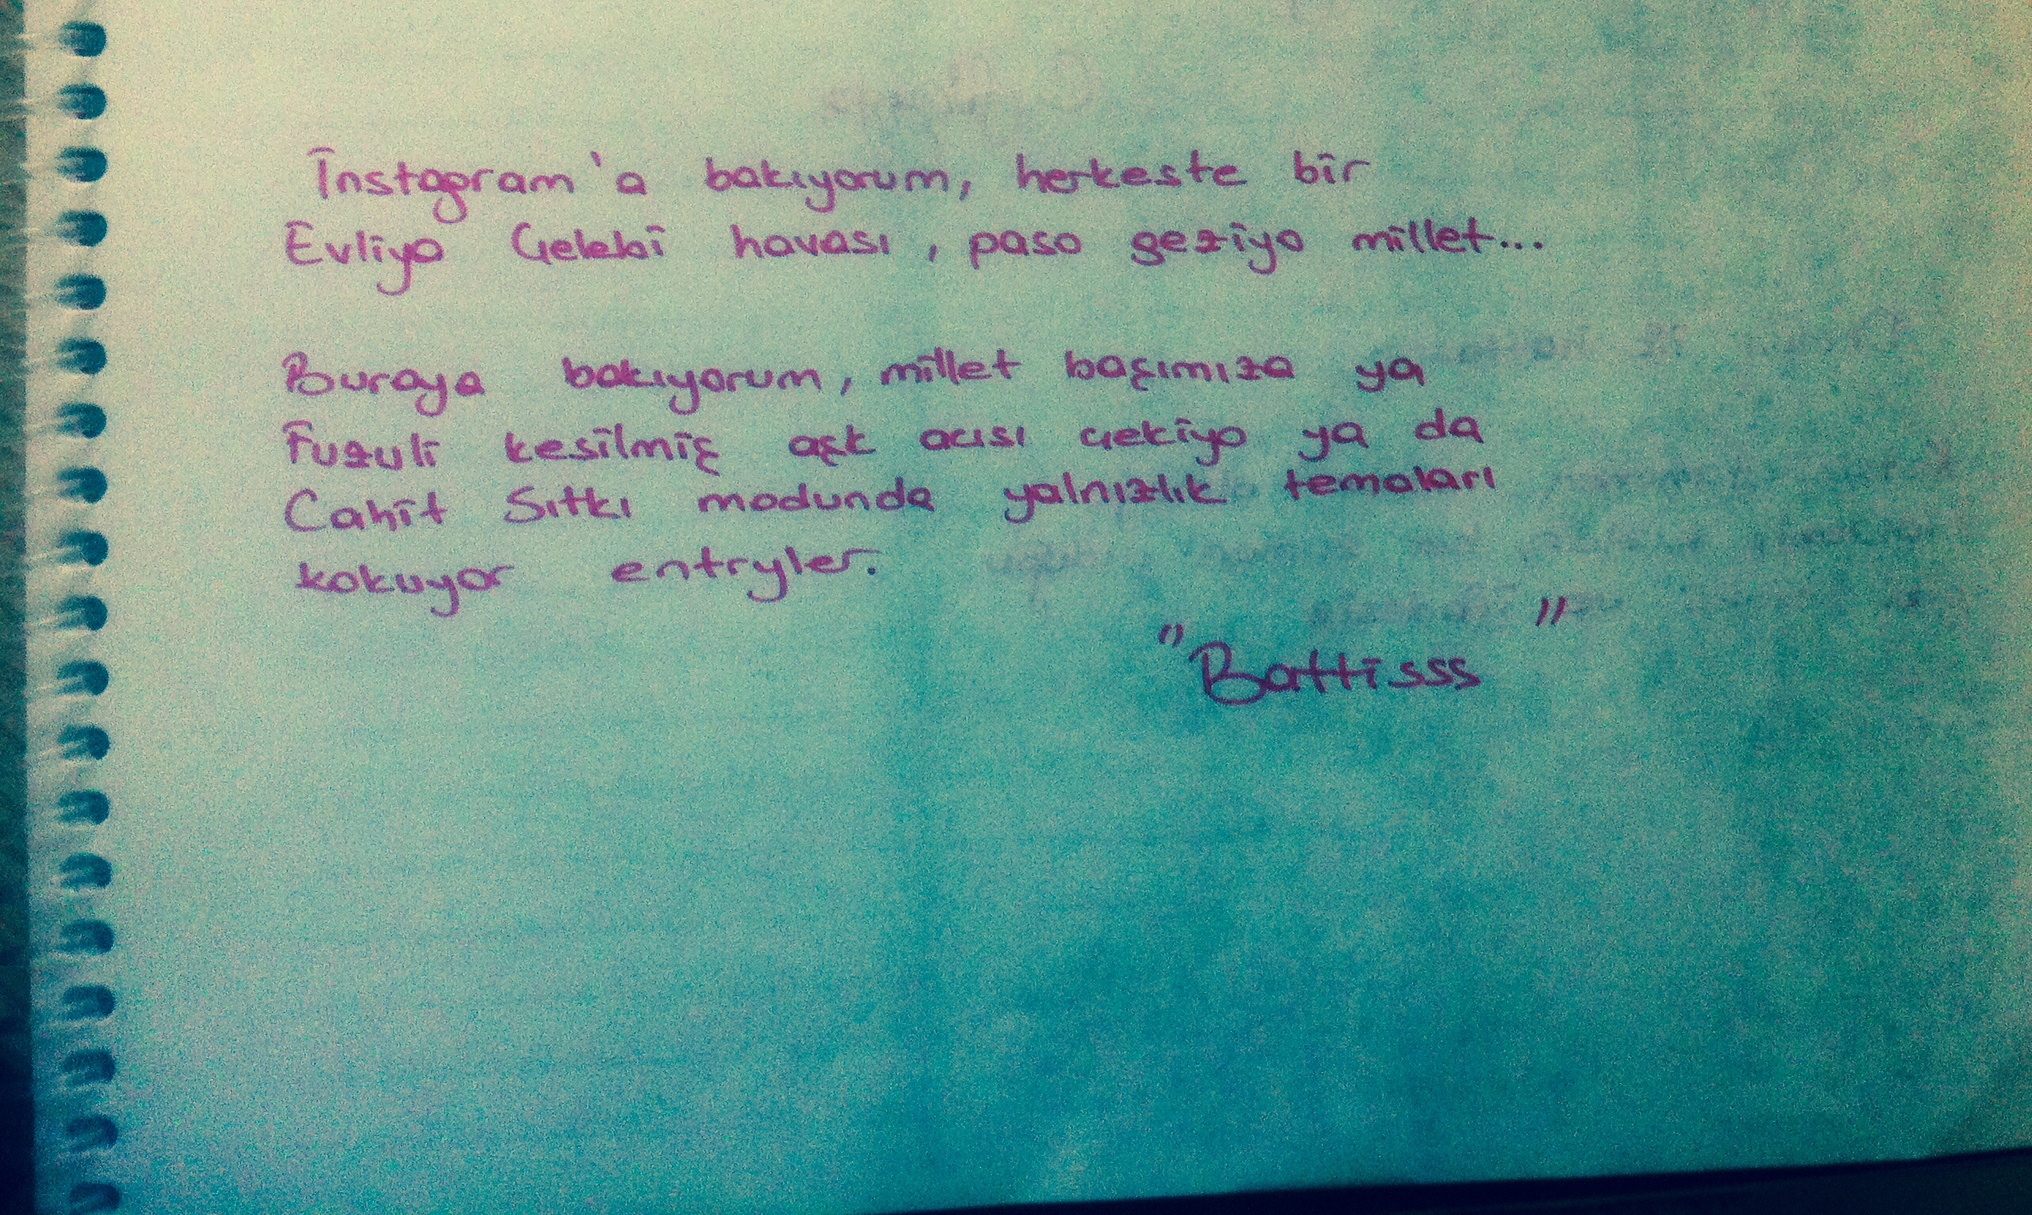 İnstagram'a bakıyorum, herkeste bir
Evliya Çelebi havası, paso geziyo millet...
Buraya bakıyorum, millet başımıza ya
Fuzuli kesilmiş aşk acısı çekiyo ya da
Cahit Sıtkı modunda yalnızlık temaları
kokuyor entryler.
"Battisss"